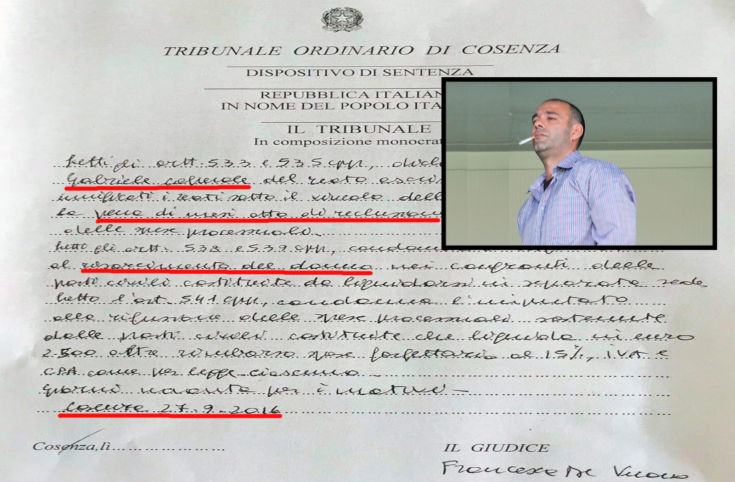 TRIBUNALE ORDINARIO DI COSENZA
DISPOSITIVO DI SENTENZA
REPUBBLICA ITALIAN
IN NOME DEL POPOLO ITA
IL TRIBUNALE
In composizione monocrat
Letti gli artt. 533 e 535 cpp,
Gabriele del reato
unificati i reati sotto il vincolo della
la pena di mesi otto di reclusione
delle spese processuali.
Letti gli artt. 538 e 539 cpp, condanna
al risarcimento del danno nei confronti delle
parti civili costituite da liquidarsi in separata sede
Letto l'art. 541 cpp, condanna l'imputato
alla rifusione delle spese processuali sostenute
dalle parti civili costituite che liquida in euro
2.500 oltre rimborso spese forfettario al 15%, I.V.A. e
CPA come per legge ciascuno.
Giorni novanta per i motivi
Cosenza 27.9.2016
Cosenza, lì
IL GIUDICE
Francesca De Vuono